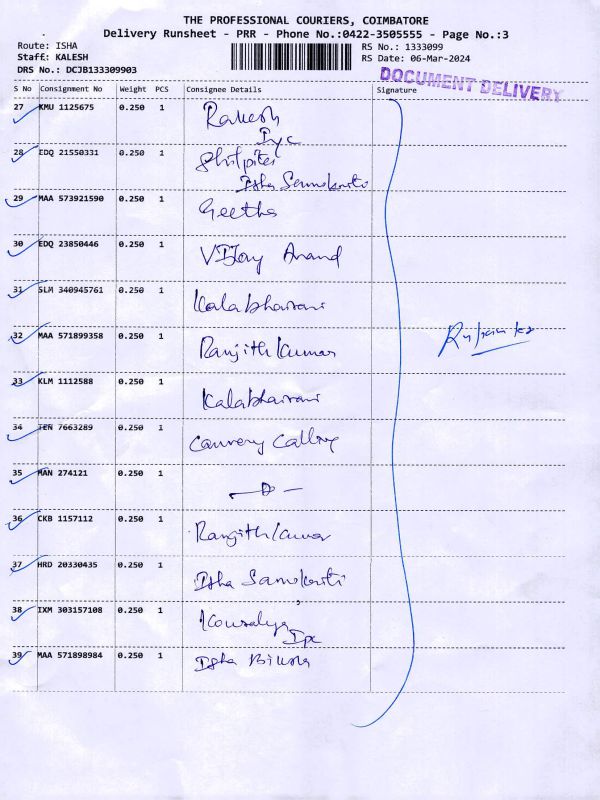 THE PROFESSIONAL COURIERS, COIMBATORE
Delivery Runsheet - PRR - Phone No.:0422-3505555 - Page No.:3
Route: ISHA
Staff: KALESH
DRS No.: DCJB133309903
RS No.: 1333099
RS Date: 06-Mar-2024
DOCUMENT DELIVERY
S No Consignment No Weight PCS Consignee Details Signature
27 KMU 1125675 0.250 1 Rakesh
Iyc
28 EDQ 21550331 0.250 1
Isha Samskriti
29 MAA 573921590 0.250 1 Geetha
30 EDQ 23850446 0.250 1 Vijay Anand
31 SLM 340945761 0.250 1 Kalabhairavi
32 MAA 571899358 0.250 1 Ranjithkumar
33 KLM 1112588 0.250 1 Kalabhairavi
34 TEN 7663289 0.250 1 Cauvery Calling
35 MAN 274121 0.250 1
36 CKB 1157112 0.250 1 Ranjithkumar
37 HRD 20330435 0.250 1 Isha Samskriti
38 IXM 303157108 0.250 1 Kousalya
39 MAA 571898984 0.250 1 Isha